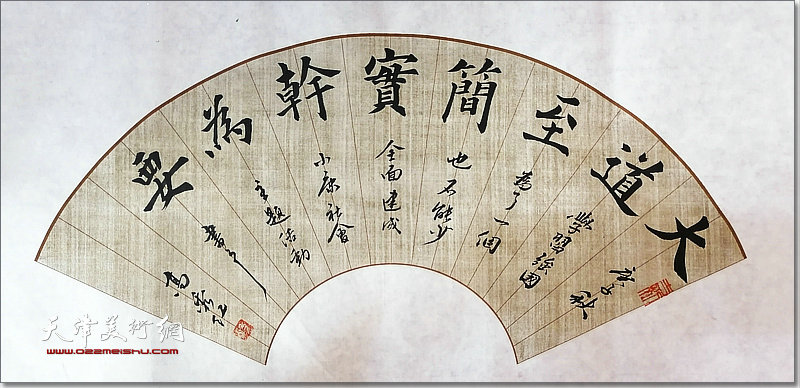 大道至簡實幹為要
庚子秋
學習强国
為了一個
也不能少
全面建成
小康社會
主題活動
高
天津美術網
www.022meishu.com